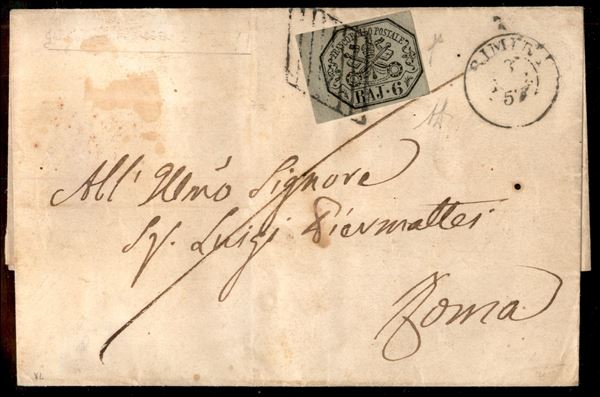 FRANCO BOLLO POSTALE
BAJ. 6
RIMINI
57
All' Illmo Signore
Sr. Luigi Piermattei
Roma